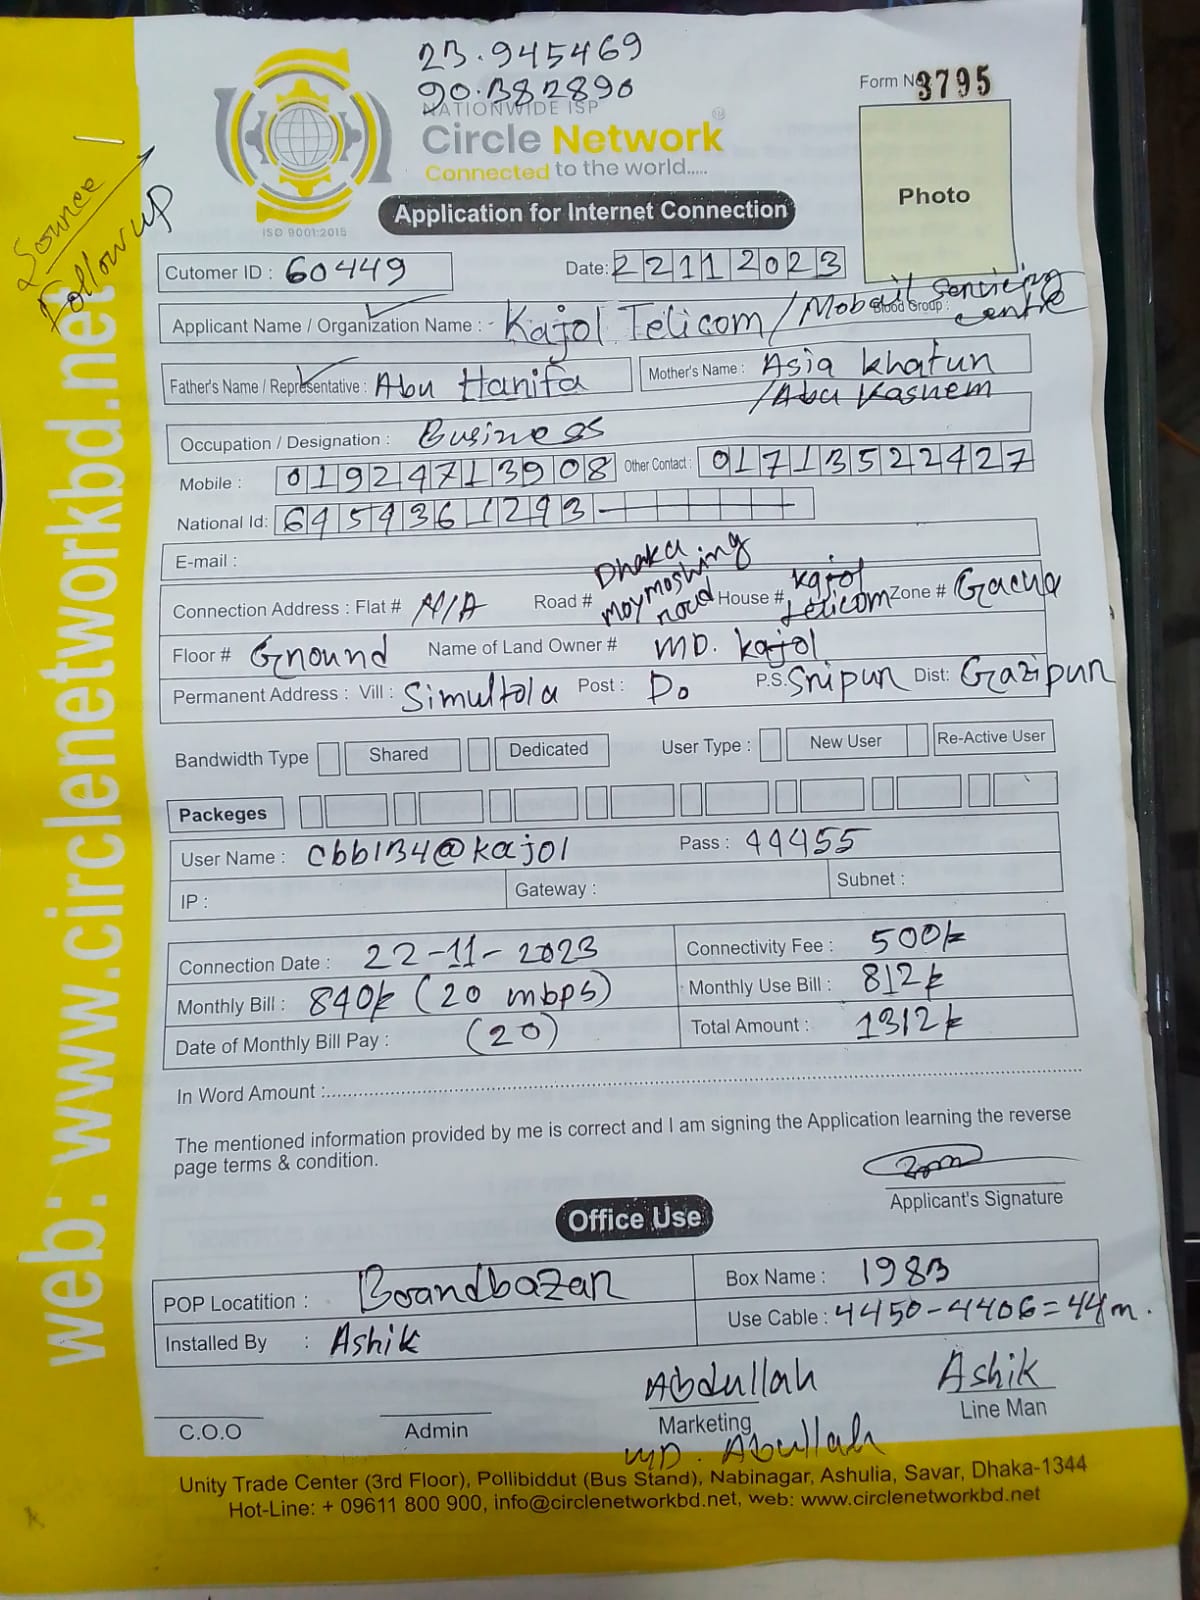 23.945469
90.382890
NATIONWIDE ISP
Circle Network
Connected to the world.....
ISO 9001:2015
Form No 3795
Photo
Source
Follow up
web: www.circlenetworkbd.net
Application for Internet Connection
Cutomer ID : 60449
Date: 22112023
Applicant Name / Organization Name : - Kajol Telicom/Mobail Servicing centre
Blood Group :
Father's Name / Representative : Abu Hanifa
Mother's Name : Asia Khatun
/Abu Kashem
Occupation / Designation : Business
Mobile : 01924713908 Other Contact : 01713522427
National Id: 6459361293
E-mail :
Connection Address : Flat # N/A Road # Dhaka moymoshing road House # Kajol telicom Zone # Gacha
Floor # Ground Name of Land Owner # MD. Kajol
Permanent Address : Vill : Simultola Post : Do P.S: Sripur Dist: Gazipur
Bandwidth Type Shared Dedicated User Type : New User Re-Active User
Packeges
User Name : cbb134@kajol Pass : 44455
IP : Gateway : Subnet :
Connection Date : 22-11-2023 Connectivity Fee : 500/=
Monthly Bill : 840/= (20 mbps) Monthly Use Bill : 812/=
Date of Monthly Bill Pay : (20) Total Amount : 1312/=
In Word Amount :
The mentioned information provided by me is correct and I am signing the Application learning the reverse
page terms & condition.
Applicant's Signature
Office Use
POP Locatition : Boardbazar Box Name : 1983
Installed By : Ashik Use Cable : 4450-4406=44m.
Abdullah Ashik
C.O.O Admin Marketing Line Man
MD. Abullah
Unity Trade Center (3rd Floor), Pollibiddut (Bus Stand), Nabinagar, Ashulia, Savar, Dhaka-1344
Hot-Line: + 09611 800 900, info@circlenetworkbd.net, web: www.circlenetworkbd.net